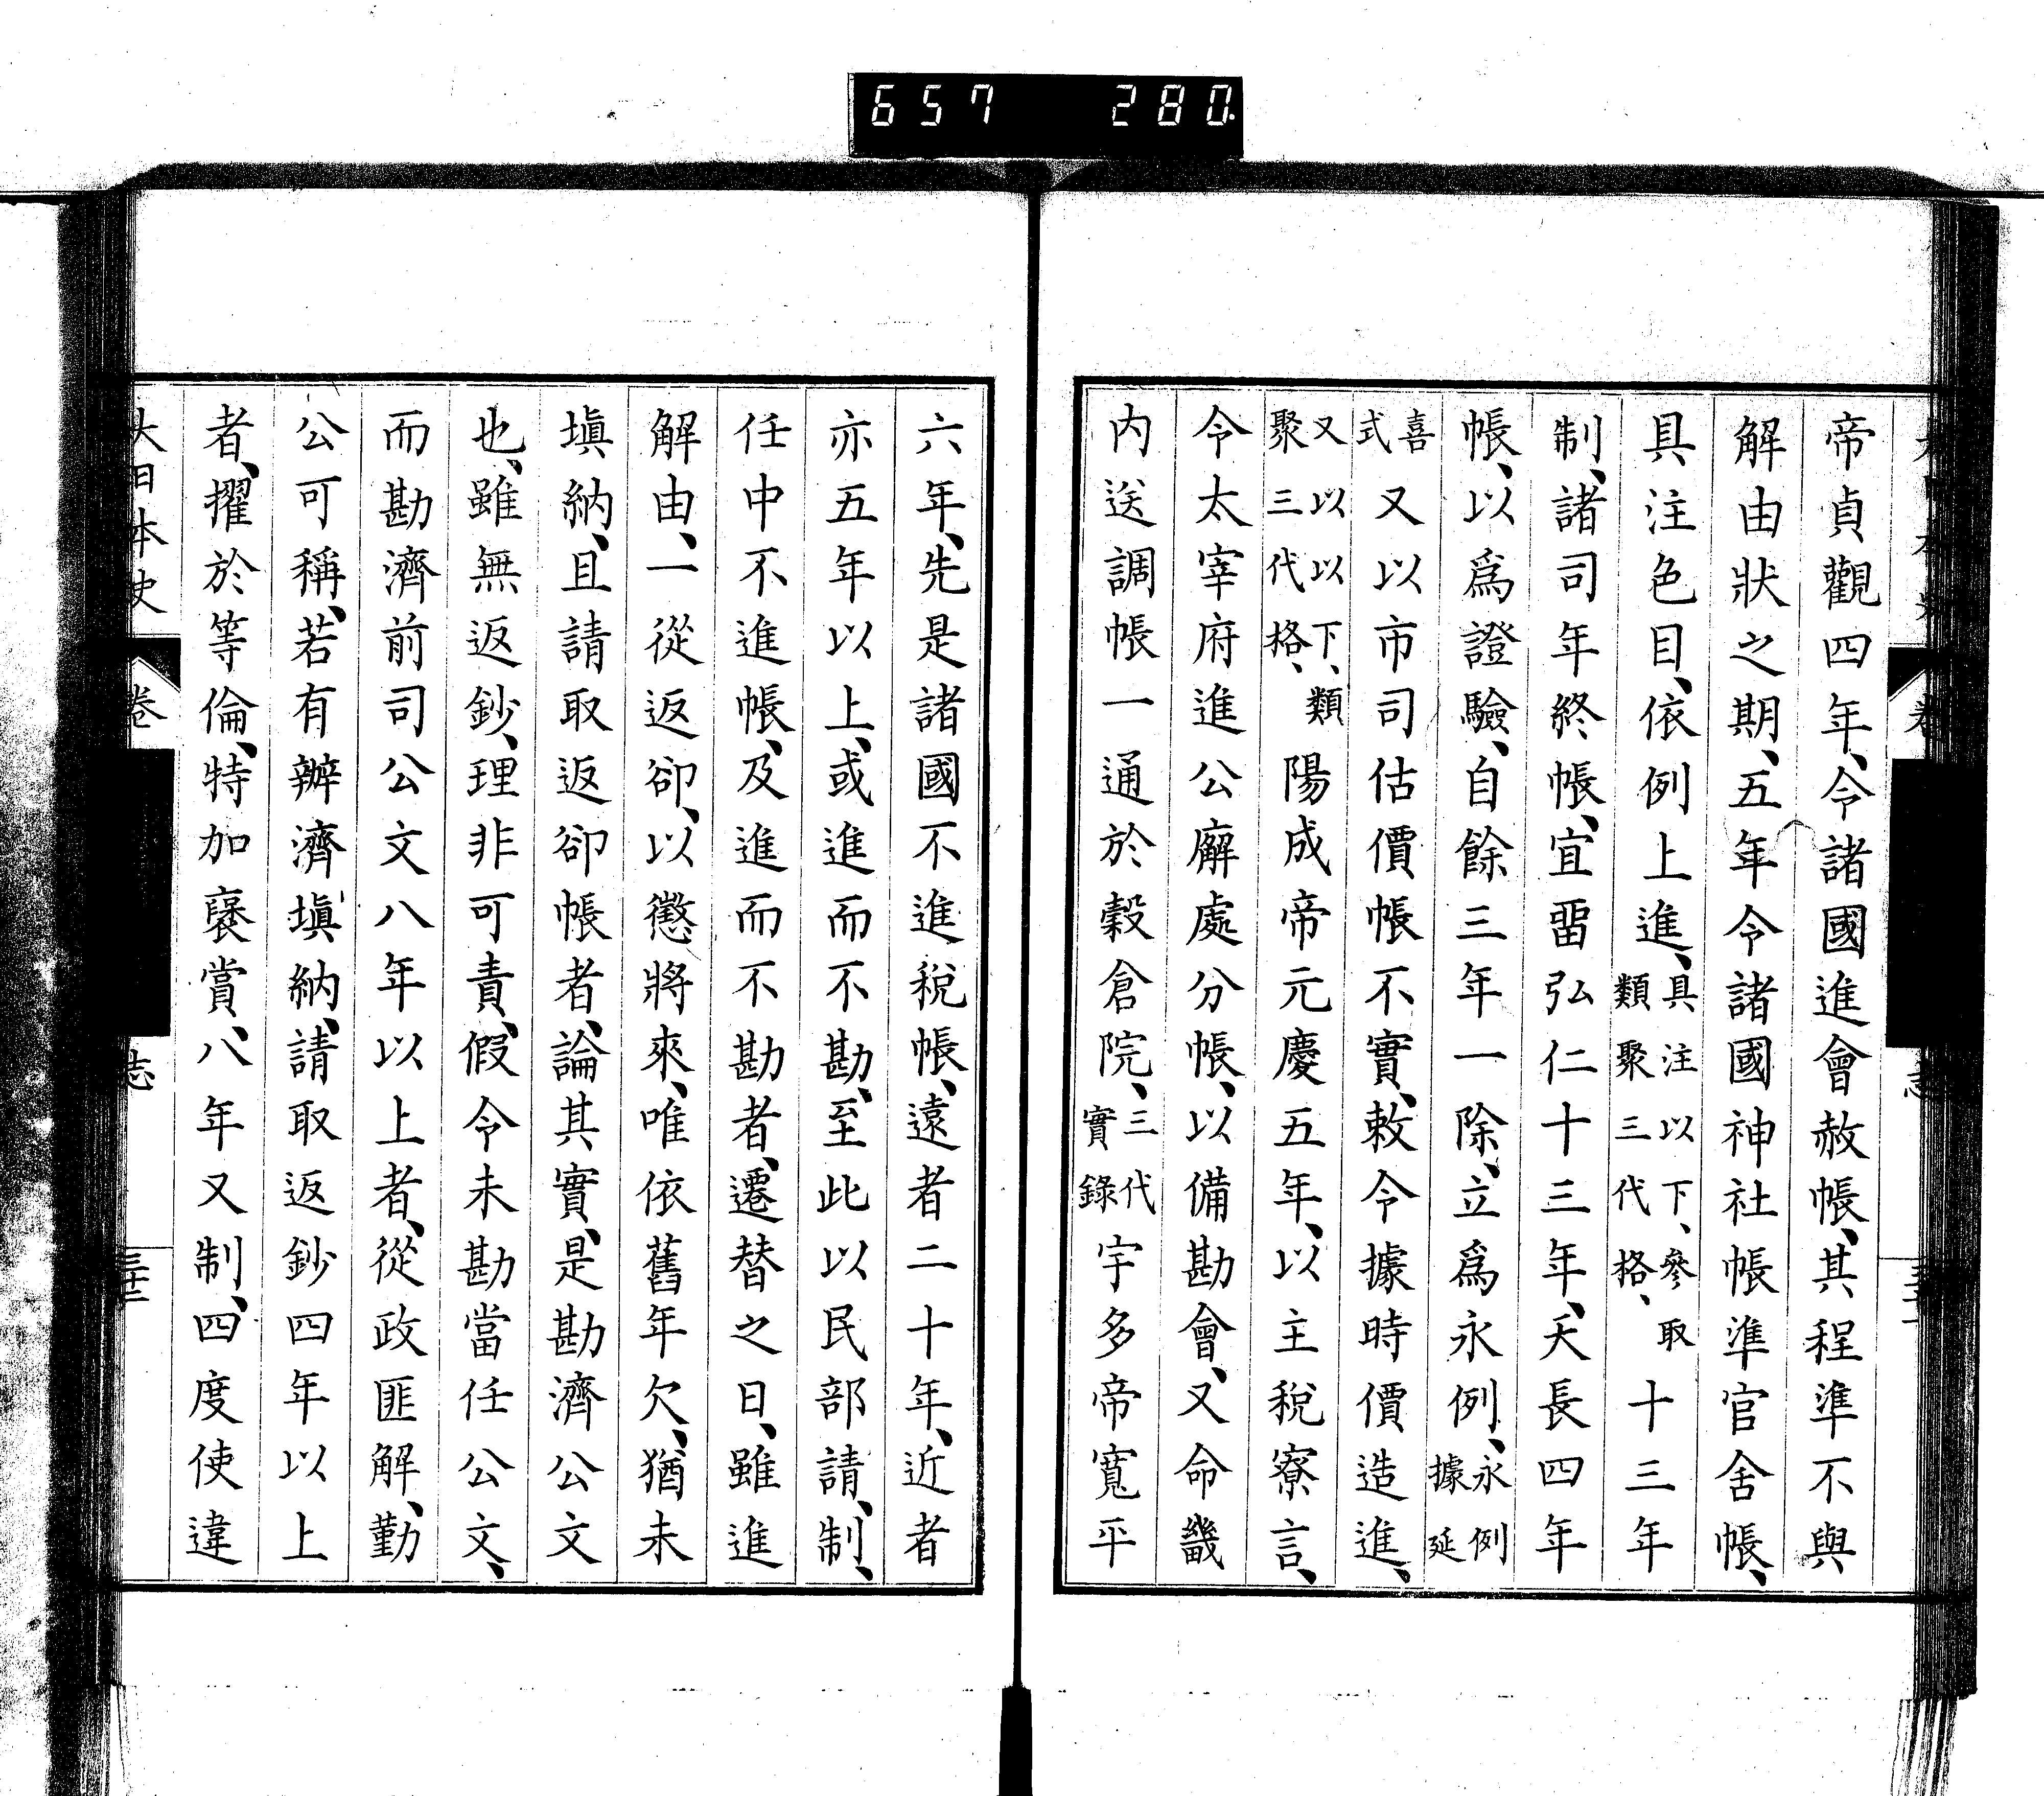 657 280
帝貞觀四年、令諸國進會赦帳、其程準不與
解由狀之期、五年令諸國神社帳準官舍帳、
具注色目、依例上進、具注以下、參取類聚三代格、十三年
制、諸司年終帳、宜畱弘仁十三年、天長四年
帳、以爲證驗、自餘三年一除、立爲永例、永例據延
喜式又以市司估價帳不實、敕令據時價造進、
又以以下、類聚三代格、陽成帝元慶五年、以主稅寮言、
令太宰府進公廨處分帳、以備勘會、又命畿
内送調帳一通於穀倉院、三代實錄宇多帝寬平
六年、先是諸國不進稅帳、遠者二十年、近者
亦五年以上、或進而不勘、至此以民部請、制、
任中不進帳、及進而不勘者、遷替之日、雖進
解由、一從返卻、以懲將來、唯依舊年欠、猶未
塡納、且請取返卻帳者、論其實、是勘濟公文
也、雖無返鈔、理非可責、假令未勘當任公文、
而勘濟前司公文八年以上者、從政匪解、勤
公可稱、若有辨濟塡納、請取返鈔四年以上
者、擢於等倫、特加襃賞、八年又制、四度使違
大日本史 卷 志 三十二